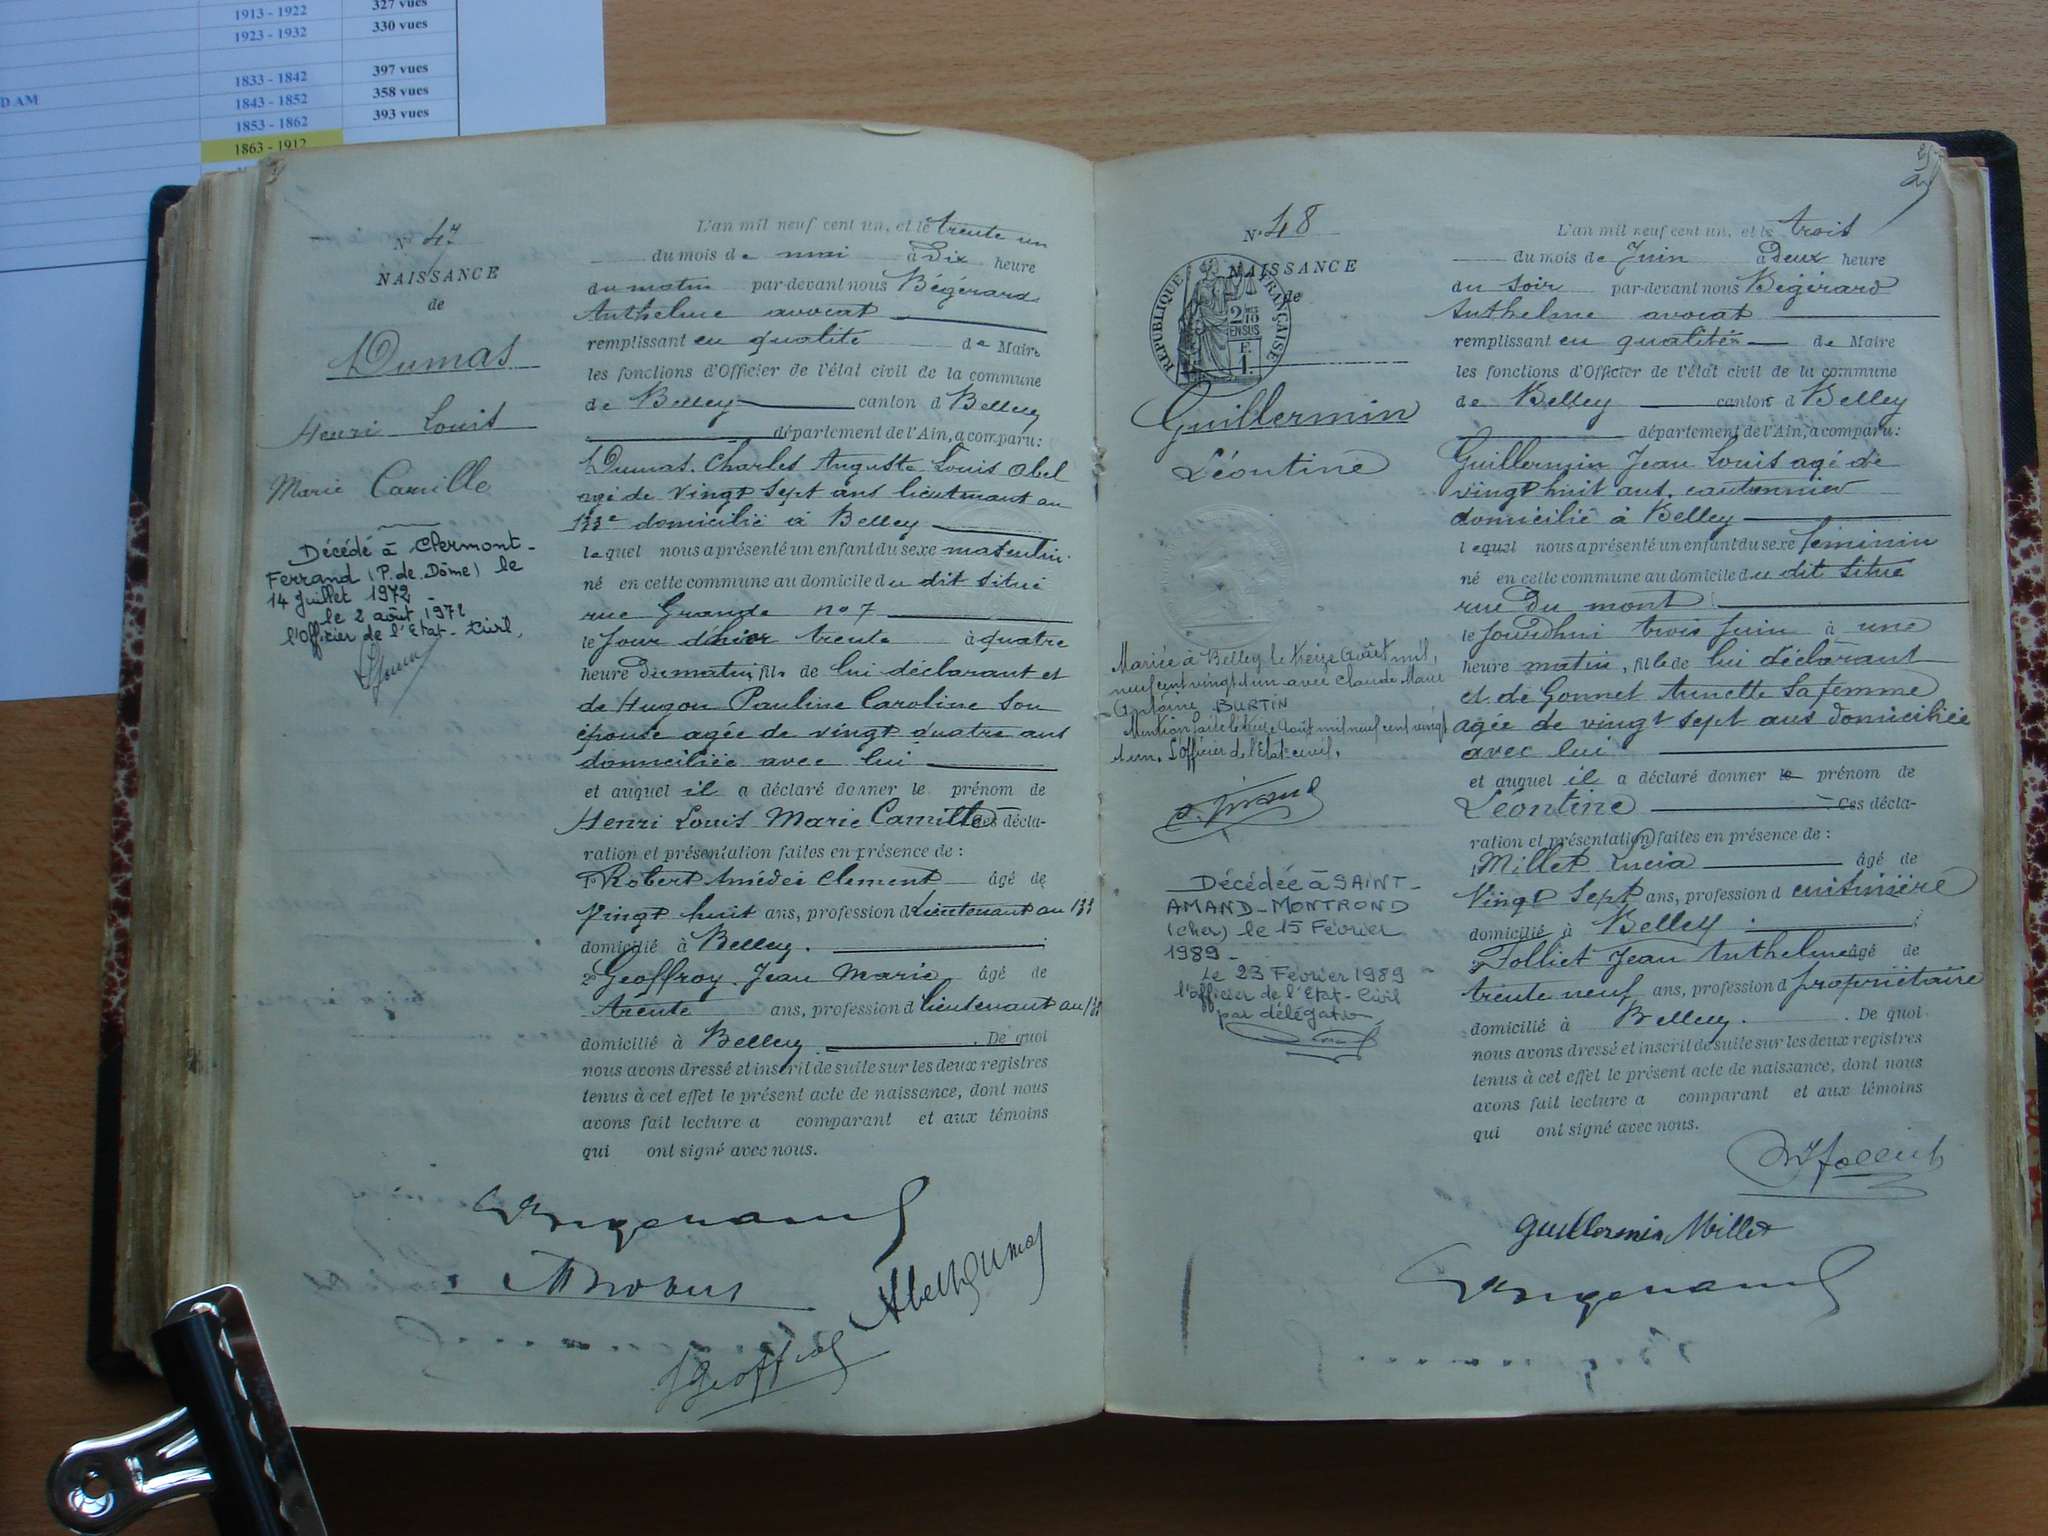 1913 - 1922 327 vues
1923 - 1932 330 vues
1833 - 1842 397 vues
D AM 1843 - 1852 358 vues
1853 - 1862 393 vues
1863 - 1912
N° 47
NAISSANCE
de
Dumas
Henri Louis
Marie Camille
Décédé à Clermont-
Ferrand (P.de.Dôme) le
14 Juillet 1972
le 2 août 1972
l'Officier de l'Etat-Civil,
L'an mil neuf cent un, et le trente un
du mois de mai à Dix heure
du matin par-devant nous Bégérard
Anthelme avocat
remplissant en qualité de Maire
les fonctions d'Officier de l'état civil de la commune
de Belley canton d Belley
département de l'Ain, a comparu:
Dumas. Charles Auguste Louis Abel
agé de vingt sept ans lieutenant au
133e domicilié à Belley
lequel nous a présenté un enfant du sexe masculin.
né en cette commune au domicile du dit situé
rue Grande no 7
le jour d'hier trente à quatre
heure du matin, fils de lui déclarant et
de Hugon Pauline Caroline son
épouse agée de vingt quatre ans
domiciliée avec lui
et auquel il a déclaré donner le prénom de
Henri Louis Marie Camille Ces décla-
ration et présentation faites en présence de :
1° Robert Amédée Clement âgé de
Vingt huit ans, profession d Lieutenant au 133
domicilié à Belley.
2° Geoffroy Jean Marie âgé de
trente ans, profession d lieutenant au 133
domicilié à Belley. De quoi
nous avons dressé et inscrit de suite sur les deux registres
tenus à cet effet le présent acte de naissance, dont nous
avons fait lecture a comparant et aux témoins
qui ont signé avec nous.
Abel Dumas
N° 48
NAISSANCE
de
RÉPUBLIQUE FRANÇAISE
2/10 EN SUS
E.
1.
Guillermin
Léontine
Mariée à Belley le treize Août mil
neuf cent vingt et un avec Claude Marie
Antoine BURTIN
Mention faite le treize Août mil neuf cent vingt
et un. L'officier de l'Etat-civil.
Décédée à SAINT-
AMAND-MONTROND
(Cher) le 15 Février
1989 -
Le 23 Février 1989 -
l'officier de l'Etat-Civil
par délégation,
L'an mil neuf cent un, et le trois
du mois de Juin à Deux heure
du soir par-devant nous Bégérard
Anthelme avocat
remplissant en qualité de Maire
les fonctions d'Officier de l'état civil de la commune
de Belley canton d Belley
département de l'Ain, a comparu:
Guillermin Jean Louis agé de
vingt huit ans. cantonnier
domicilié à Belley
lequel nous a présenté un enfant du sexe féminin
né en cette commune au domicile du dit situé
rue du mont
le jourd'hui trois juin à une
heure matin, fille de lui déclarant
et de Gonnet Annette sa femme
agée de vingt sept ans domiciliée
avec lui
et auquel il a déclaré donner le prénom de
Léontine Ces décla-
ration et présentation faites en présence de :
1° Millet Lucia âgé de
Vingt Sept ans, profession d cuisinière
domicilié à Belley
2° Folliet Jean Anthelme âgé de
trente neuf ans, profession d propriétaire
domicilié à Belley. De quoi
nous avons dressé et inscrit de suite sur les deux registres
tenus à cet effet le présent acte de naissance, dont nous
avons fait lecture a comparant et aux témoins
qui ont signé avec nous.
Guillermin Millet